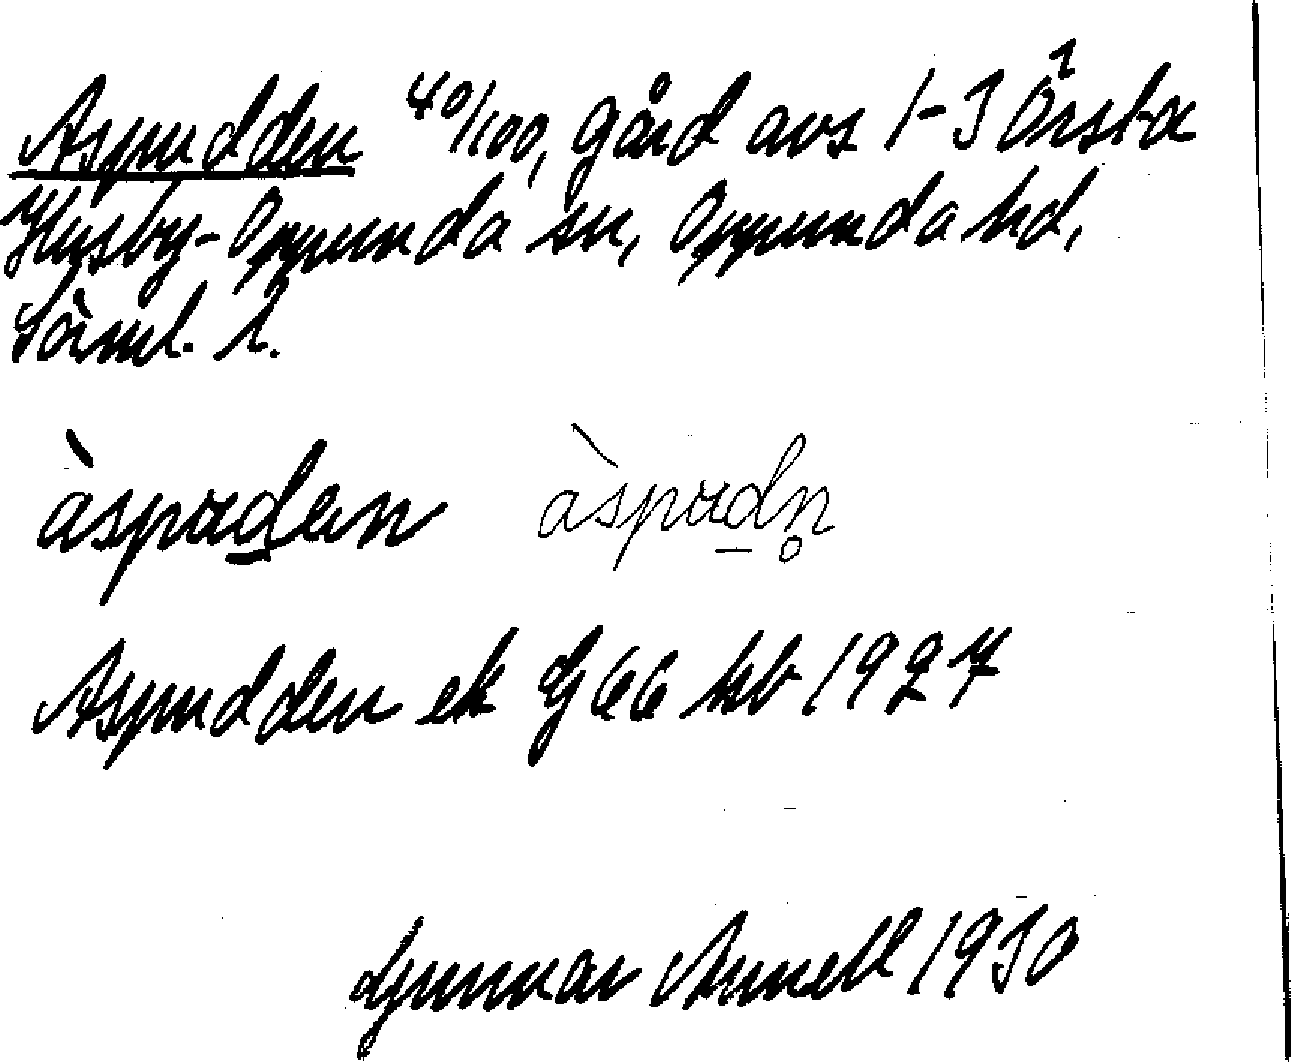 Aspudden 40/100, gård avs 1-3 Örsta
Husby-Oppunda sn, Oppunda hd,
Söml. l.
àspuden àspudn̥
Aspudden ek G66 hb 1927
Gunnar Arnell 1930